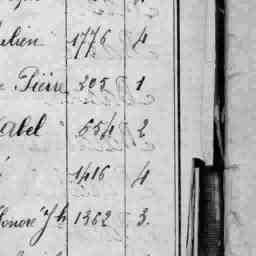 ulien 1776 4
Pièire 205 1
abel 654 2
1416 4
onoré 1362 3.